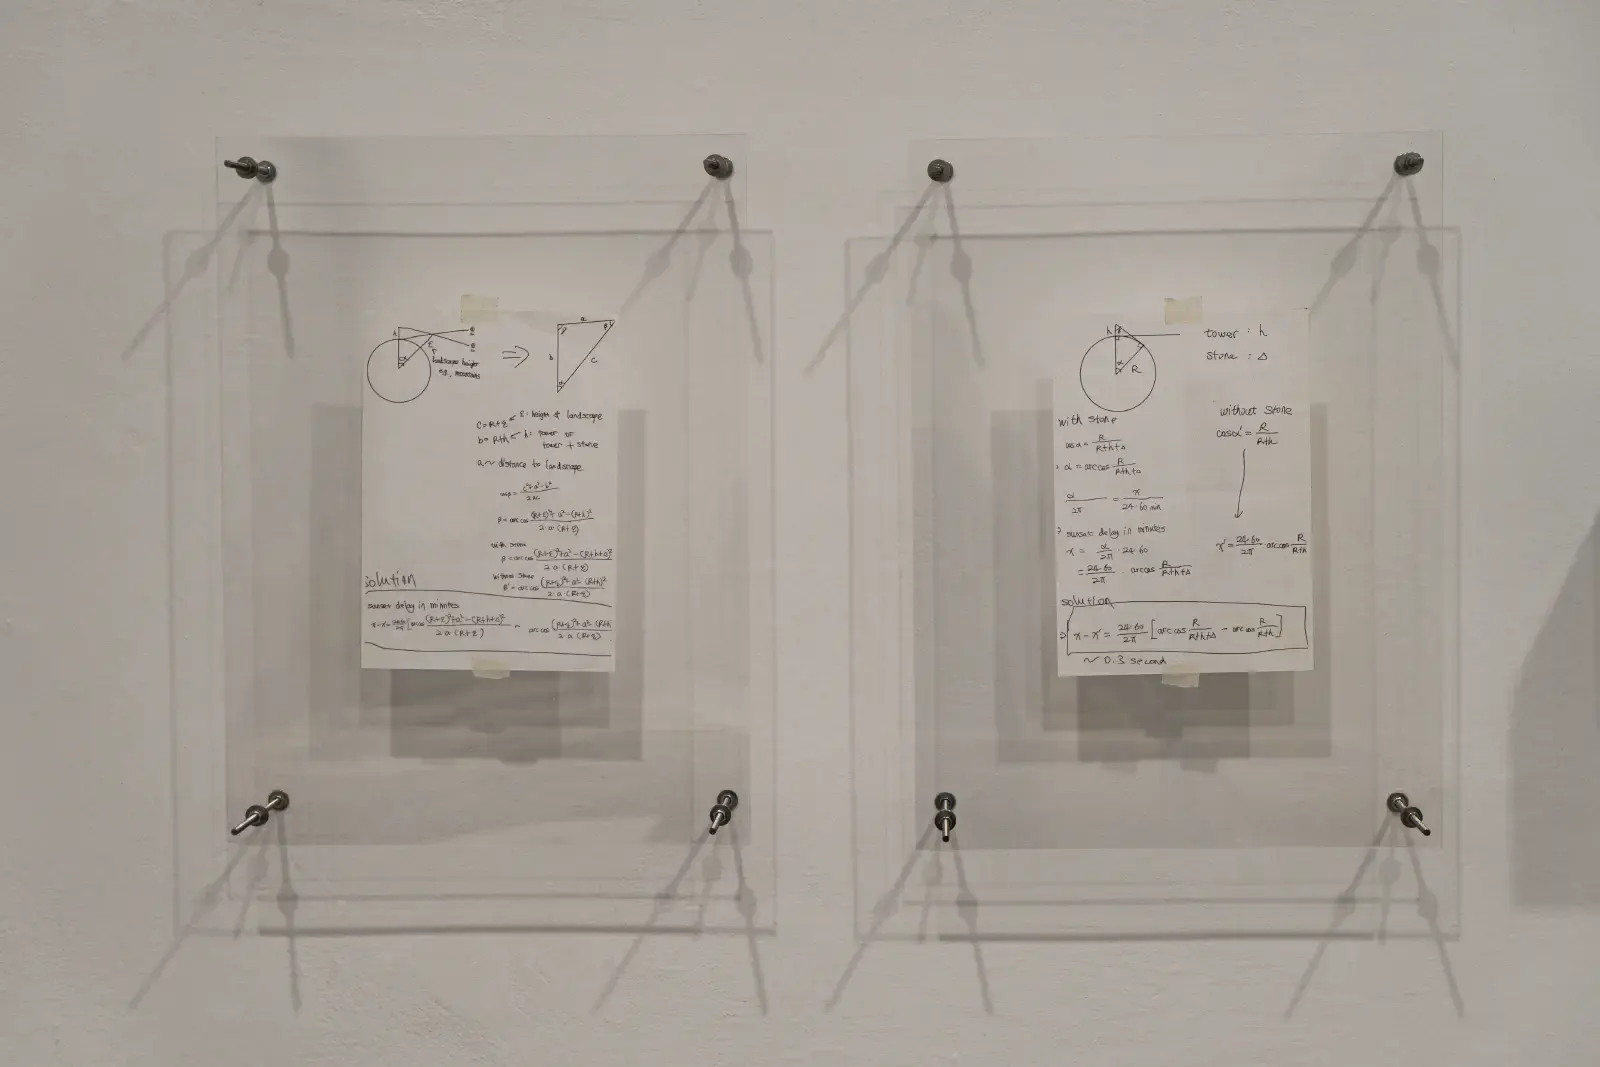 h
α
ε
landscape height
e.g., mountains
⇒
a
b
c
α
β
γ
c = R+ε ε : height of landscape
b = R+h h : tower or
tower + stone
a ~ distance to landscape
cosβ = (c²+a²-b²)/(2ac)
β = arc cos ((R+ε)²+a²-(R+h)²)/(2·a·(R+ε))
with stone
β = arc cos ((R+ε)²+a²-(R+h+Δ)²)/(2·a·(R+ε))
without stone
β' = arc cos ((R+ε)²+a²-(R+h)²)/(2·a·(R+ε))
solution
sunset delay in minutes
x-x' = (24·60)/(2π) [arc cos ((R+ε)²+a²-(R+h+Δ)²)/(2·a·(R+ε)) - arc cos ((R+ε)²+a²-(R+h)/(2·a·(R+ε))
h
α
R
tower : h
stone : Δ
with stone
cosα = R/(R+h+Δ)
α = arc cos R/(R+h+Δ)
α/2π = x/(24·60 min)
sunset delay in minutes
x = α/2π · 24·60
= (24·60)/2π · arc cos R/(R+h+Δ)
without stone
cosα' = R/(R+h)
x' = (24·60)/2π · arc cos R/(R+h)
solution
⇒ x-x' = (24·60)/2π [arc cos R/(R+h+Δ) - arc cos R/(R+h)]
~ 0.3 second